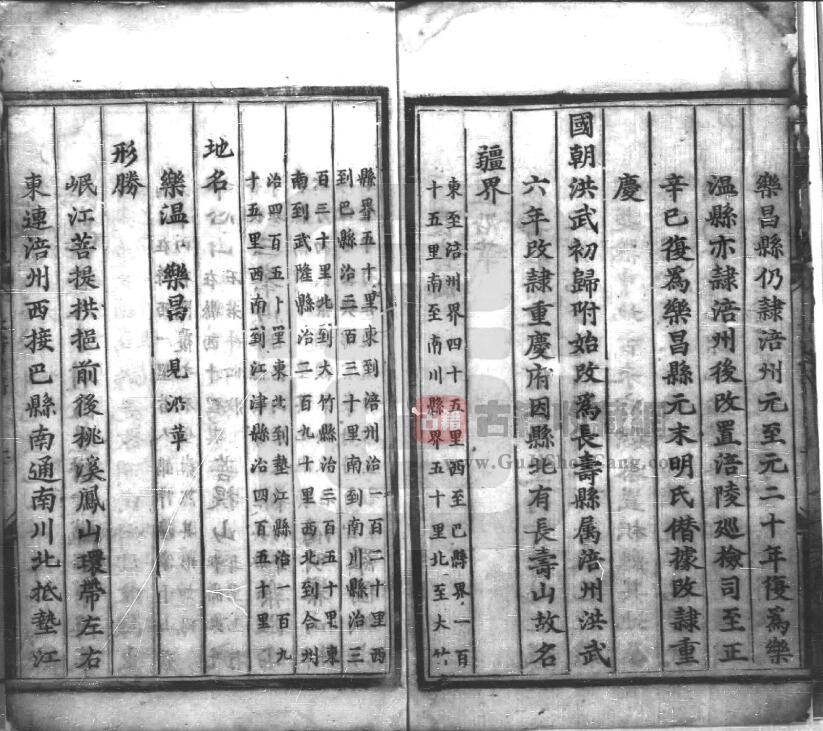 樂昌縣仍隷涪州元至元二十年復為樂
温縣亦隷涪州後改置涪陵廵檢司至正
辛巳復為樂昌縣元末明氏僣據改隷重
慶
國朝洪武初歸附始改為長壽縣属涪州洪武
六年改隷重慶府因縣北有長壽山故名
疆界
東至涪州界四十五里西至巴縣界一百
十五里南至南川縣界五十里北至大竹
縣界五十里東到涪州治一百二十里西
到巴縣治三百三十里南到南川縣治三
百三十里北到大竹縣治三百五十里東
南到武隆縣治二百九十里西北到合州
治四百五十里東北到墊江縣治一百九
十五里西南到江津縣治四百五十里
地名
樂温 樂昌 見沿革
形勝
岷江菩提拱挹前後桃溪鳳山環帶左右
東連涪州西接巴縣南通南川北抵墊江
古籍
www.GuJiShouCang.com